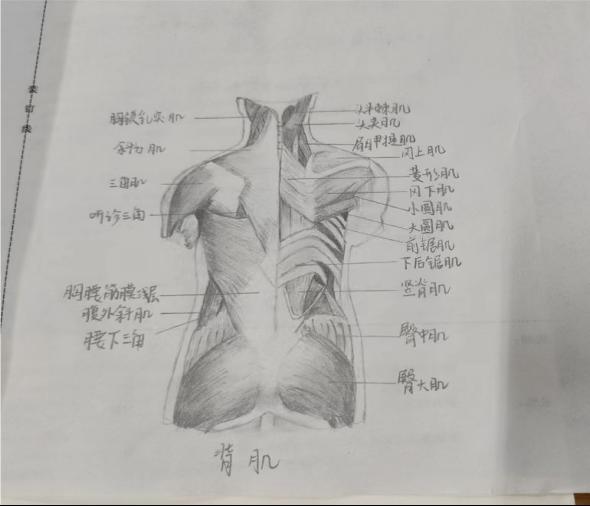 装
订
线
胸锁乳突肌
斜方肌
三角肌
听诊三角
胸腰筋膜浅层
腹外斜肌
腰下三角
头半棘肌
头夹肌
肩胛提肌
冈上肌
菱形肌
冈下肌
小圆肌
大圆肌
前锯肌
下后锯肌
竖脊肌
臀中肌
臀大肌
背肌